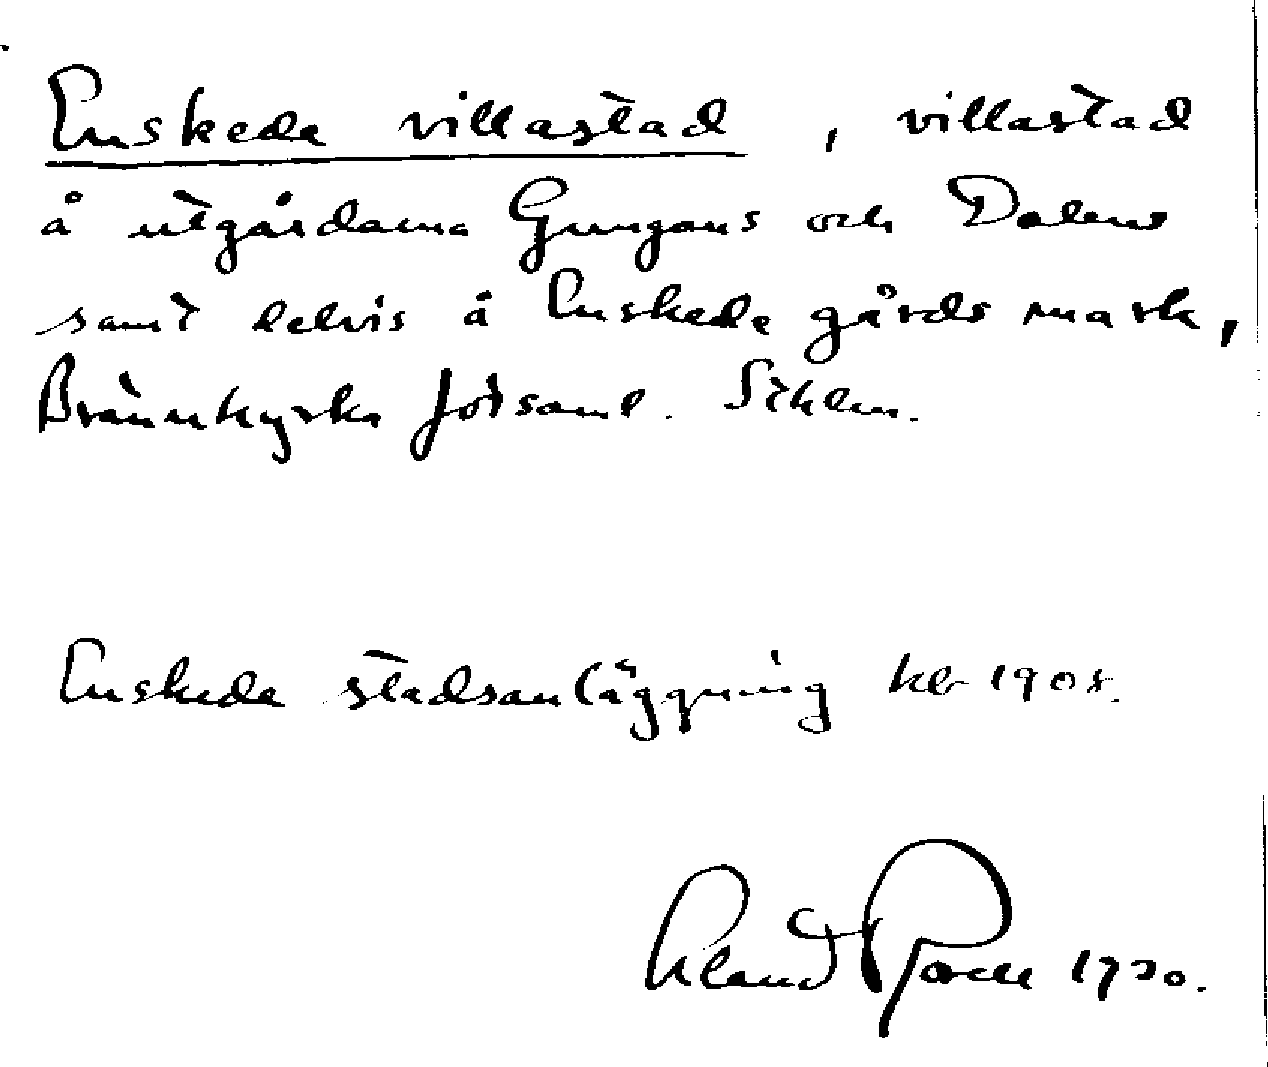 Enskede villastad, villastad
å utgårdarna Gungans och Dalens
samt delvis å Enskede gårds mark,
Brännkyrka förs aml. Sthlm.
Enskede stadsanläggning kb 1908.
1930.